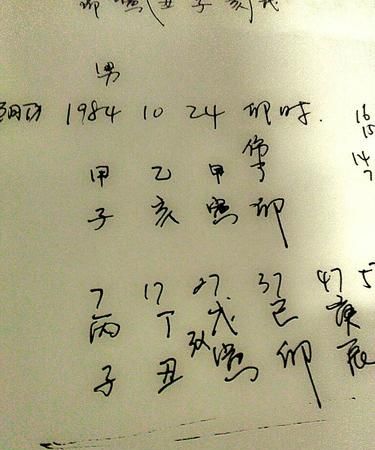 卯 寅(丑 子 亥)戌
男
1984 10 24 卯时. 16
15
14
甲 乙 甲 丁 7
子 亥 寅 卯
7 17 27 37 47 5
丙 丁 戊 己 庚
子 丑 寅 卯 辰